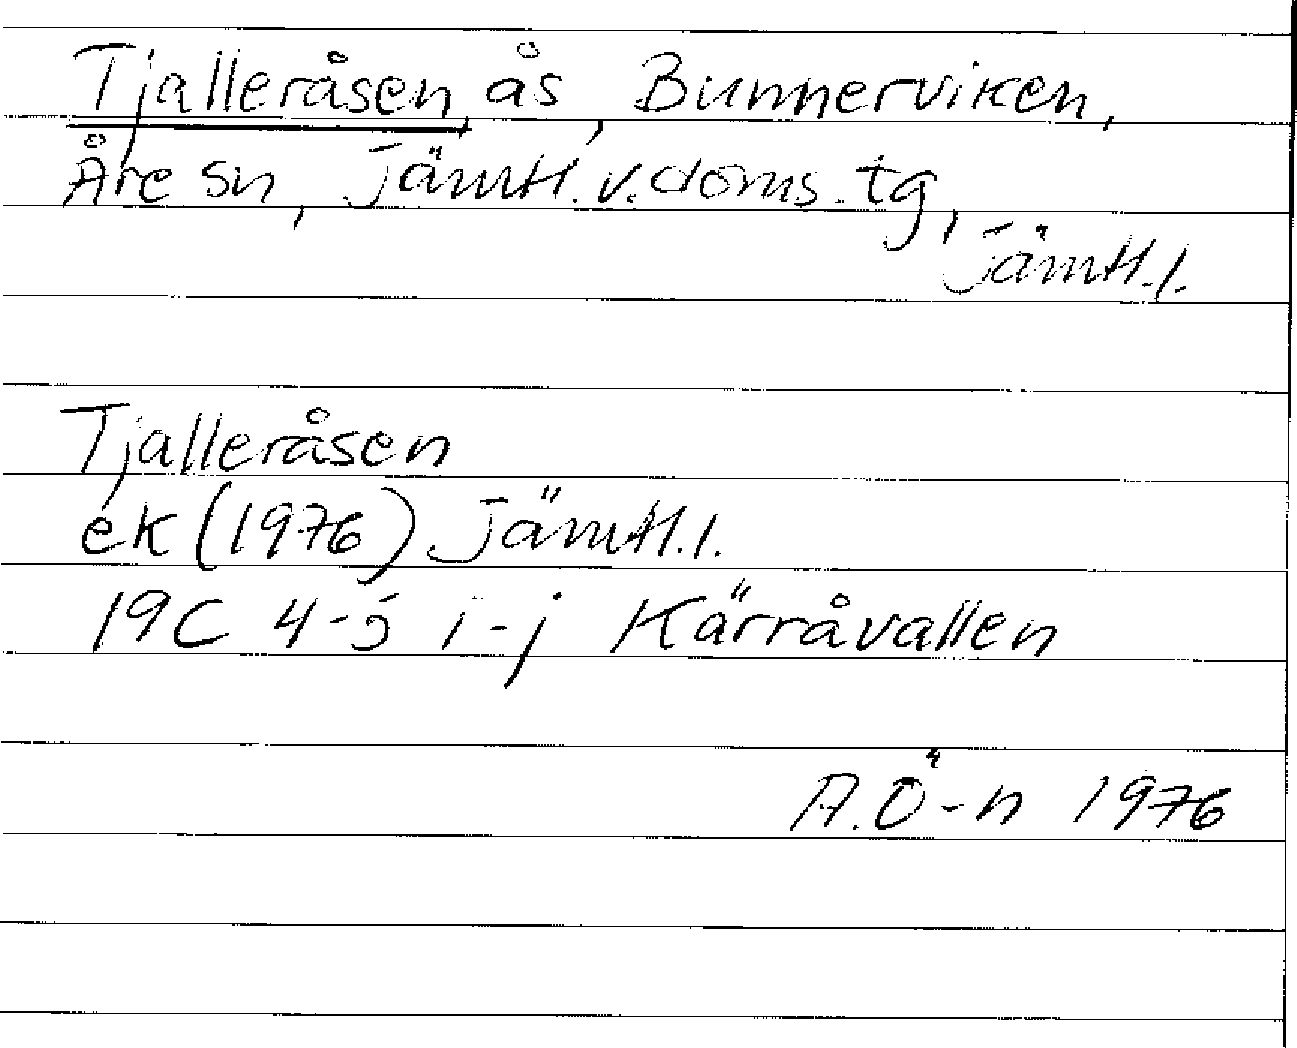 Tjalleråsen, ås, Bunnerviken,
Åre sn, Jämtl. v. doms. tg,
Jämtl. l.
Tjalleråsen
ek (1976) Jämtl. l.
19C 4-5 i-j Kärråvallen
A. Ö-n 1976